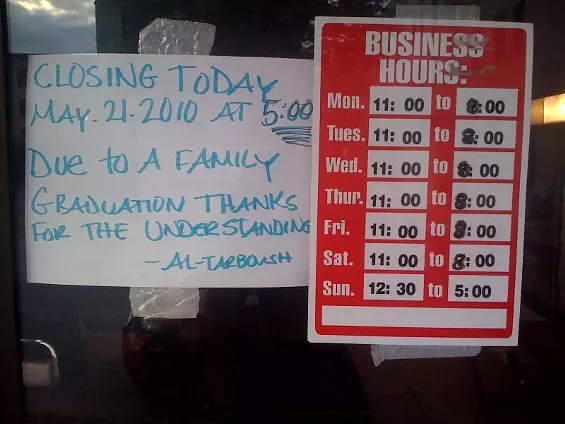 CLOSING TODAY
MAY. 21. 2010 AT 5:00
DUE TO A FAMILY
GRADUATION THANKS
FOR THE UNDERSTANDING
- AL-TARBOUSH
BUSINESS
HOURS:
Mon. 11: 00 to 8:00
Tues. 11: 00 to 8:00
Wed. 11: 00 to 8:00
Thur. 11: 00 to 8:00
Fri. 11: 00 to 8:00
Sat. 11: 00 to 8:00
Sun. 12: 30 to 5:00